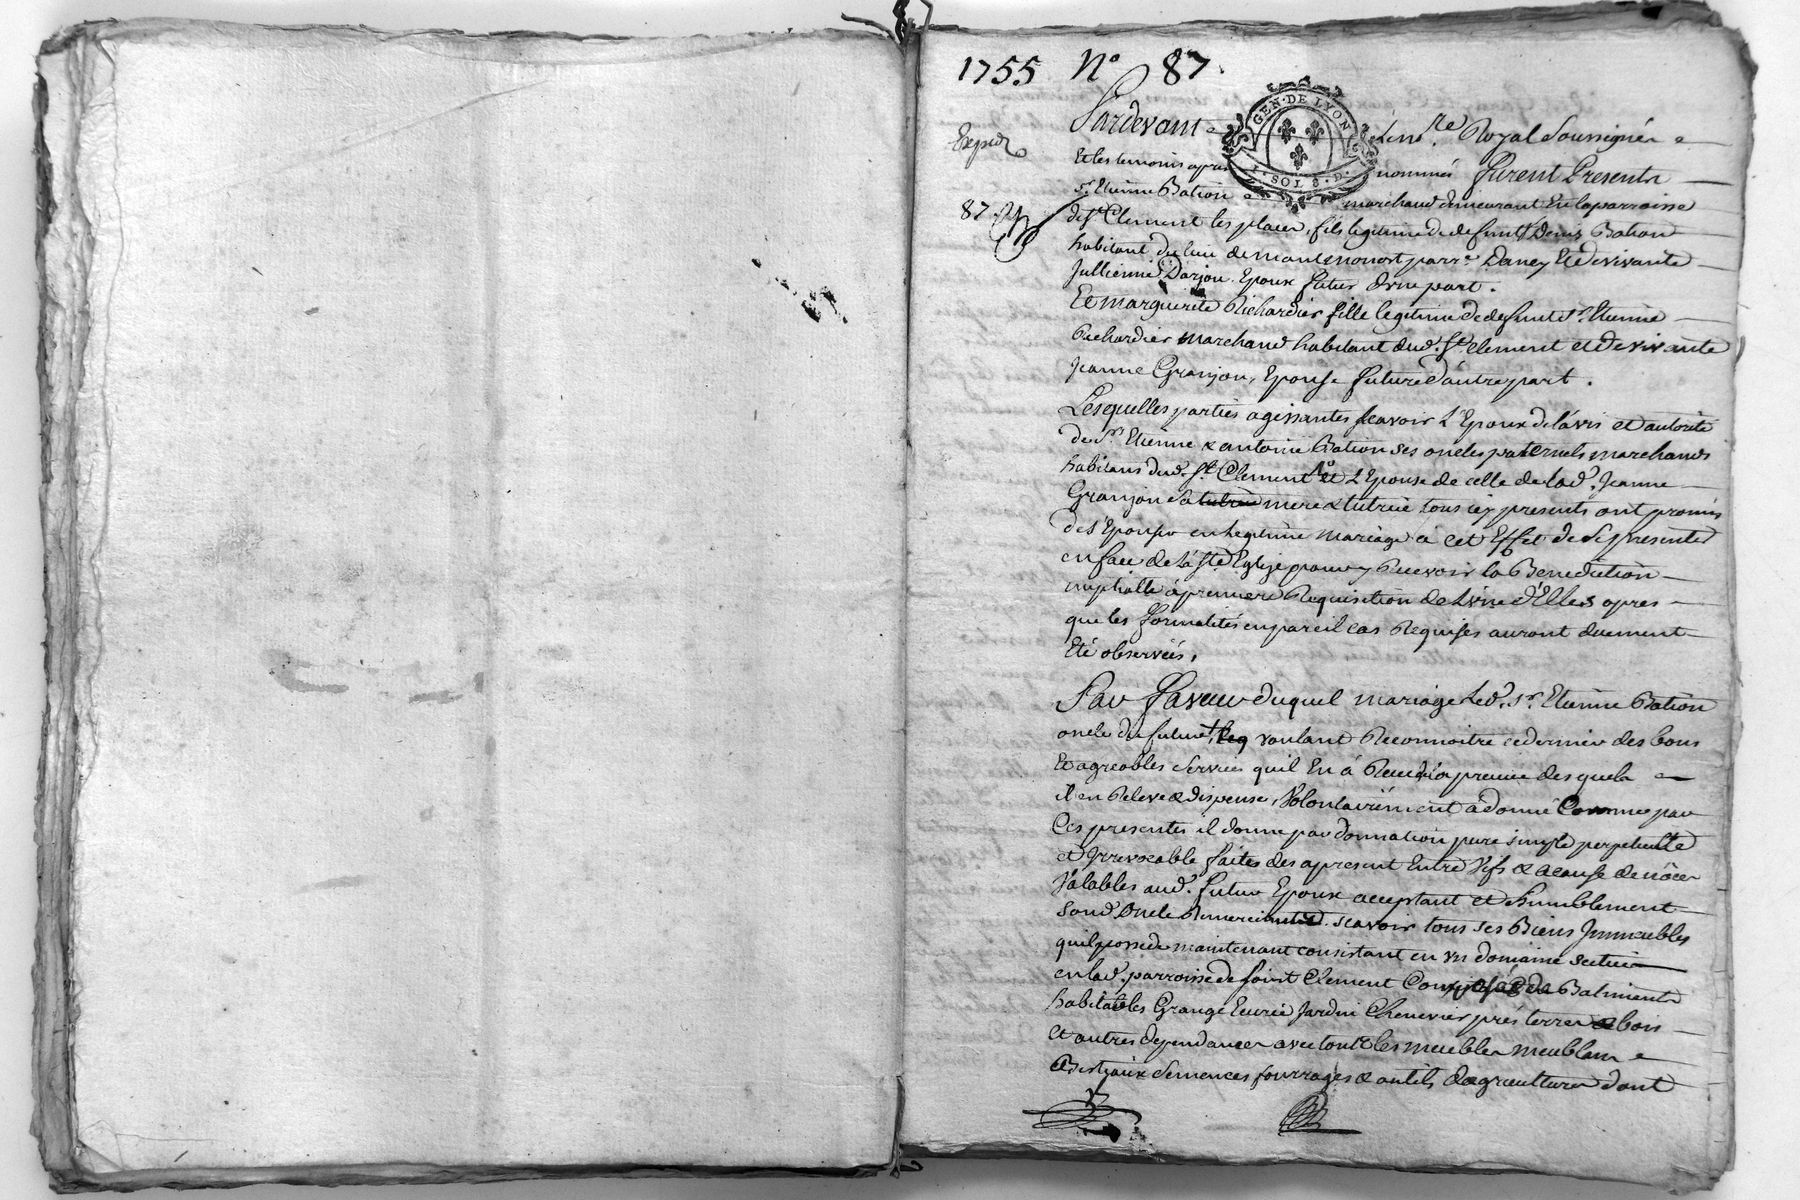 1755 N° 87
GEN·DE LYON
1·SOL 8·D.
Expié
87
Pardevant Le no.re Royal Soussigné
Et les temoins apres nommés furent Presents
sr. Etienne Bation marchand demeurant En la parroisse
de St Clement les places, fils legitime de defunt Denis Bation
habitant du lieu de montmonost parre. Dancy Et de vivante
Jullienne Darjou Epoux futur d'une part.
Et marguerite Richardier fille legitime de defunt Sr. Etienne
Richardier marchand habitant dud. St. Clement et de vivante
Jeanne Granjon, Epouse future d'autre part.
Lesquelles parties agissantes scavoir L'Epoux de l'avis et autorité
de Sr. Etienne & antoine Bation ses oncles paternels marchands
habitans dud. St. Clement et L'Epouse de celle de lad. Jeanne
Granjon sa mere & tutrice tous icy presents ont promis
de s'Epouser en legitime mariage a cet Effet de se presenter
en face de la Ste Eglise pour y Recevoir la Benediction
nuptialle a premiere Requisition de L'une d'Elles apres
que les formalités en pareil cas Requises auront duement
Eté observées,
Par faveur duquel mariage Led. Sr. Etienne Bation
oncle du futur voulant Reconnoitre ce dernier des bons
Et agreables services quil En a Recu de la preuve desquels
il en Releve & dispense, Volontairement a donné Comme par
Ces presentes il donne par donnation pure simple perpetuelle
et Irrevocable faites des apresent Entre Vifs & a cause de nôces
Valables aud. futur Epoux acceptant et humblement
Soud. Oncle Remerciant scavoir tous ses Biens Immeubles
quil possede maintenant consistant en un domaine scitué
en lad. parroisse de saint Clement Composé de Batiments
habitables Grange Ecurie Jardin Chenevier prés terres & bois
Et autres dependances avec tout les meubles meublans
Bestiaux semences fourrages & outils d'agriculture dont